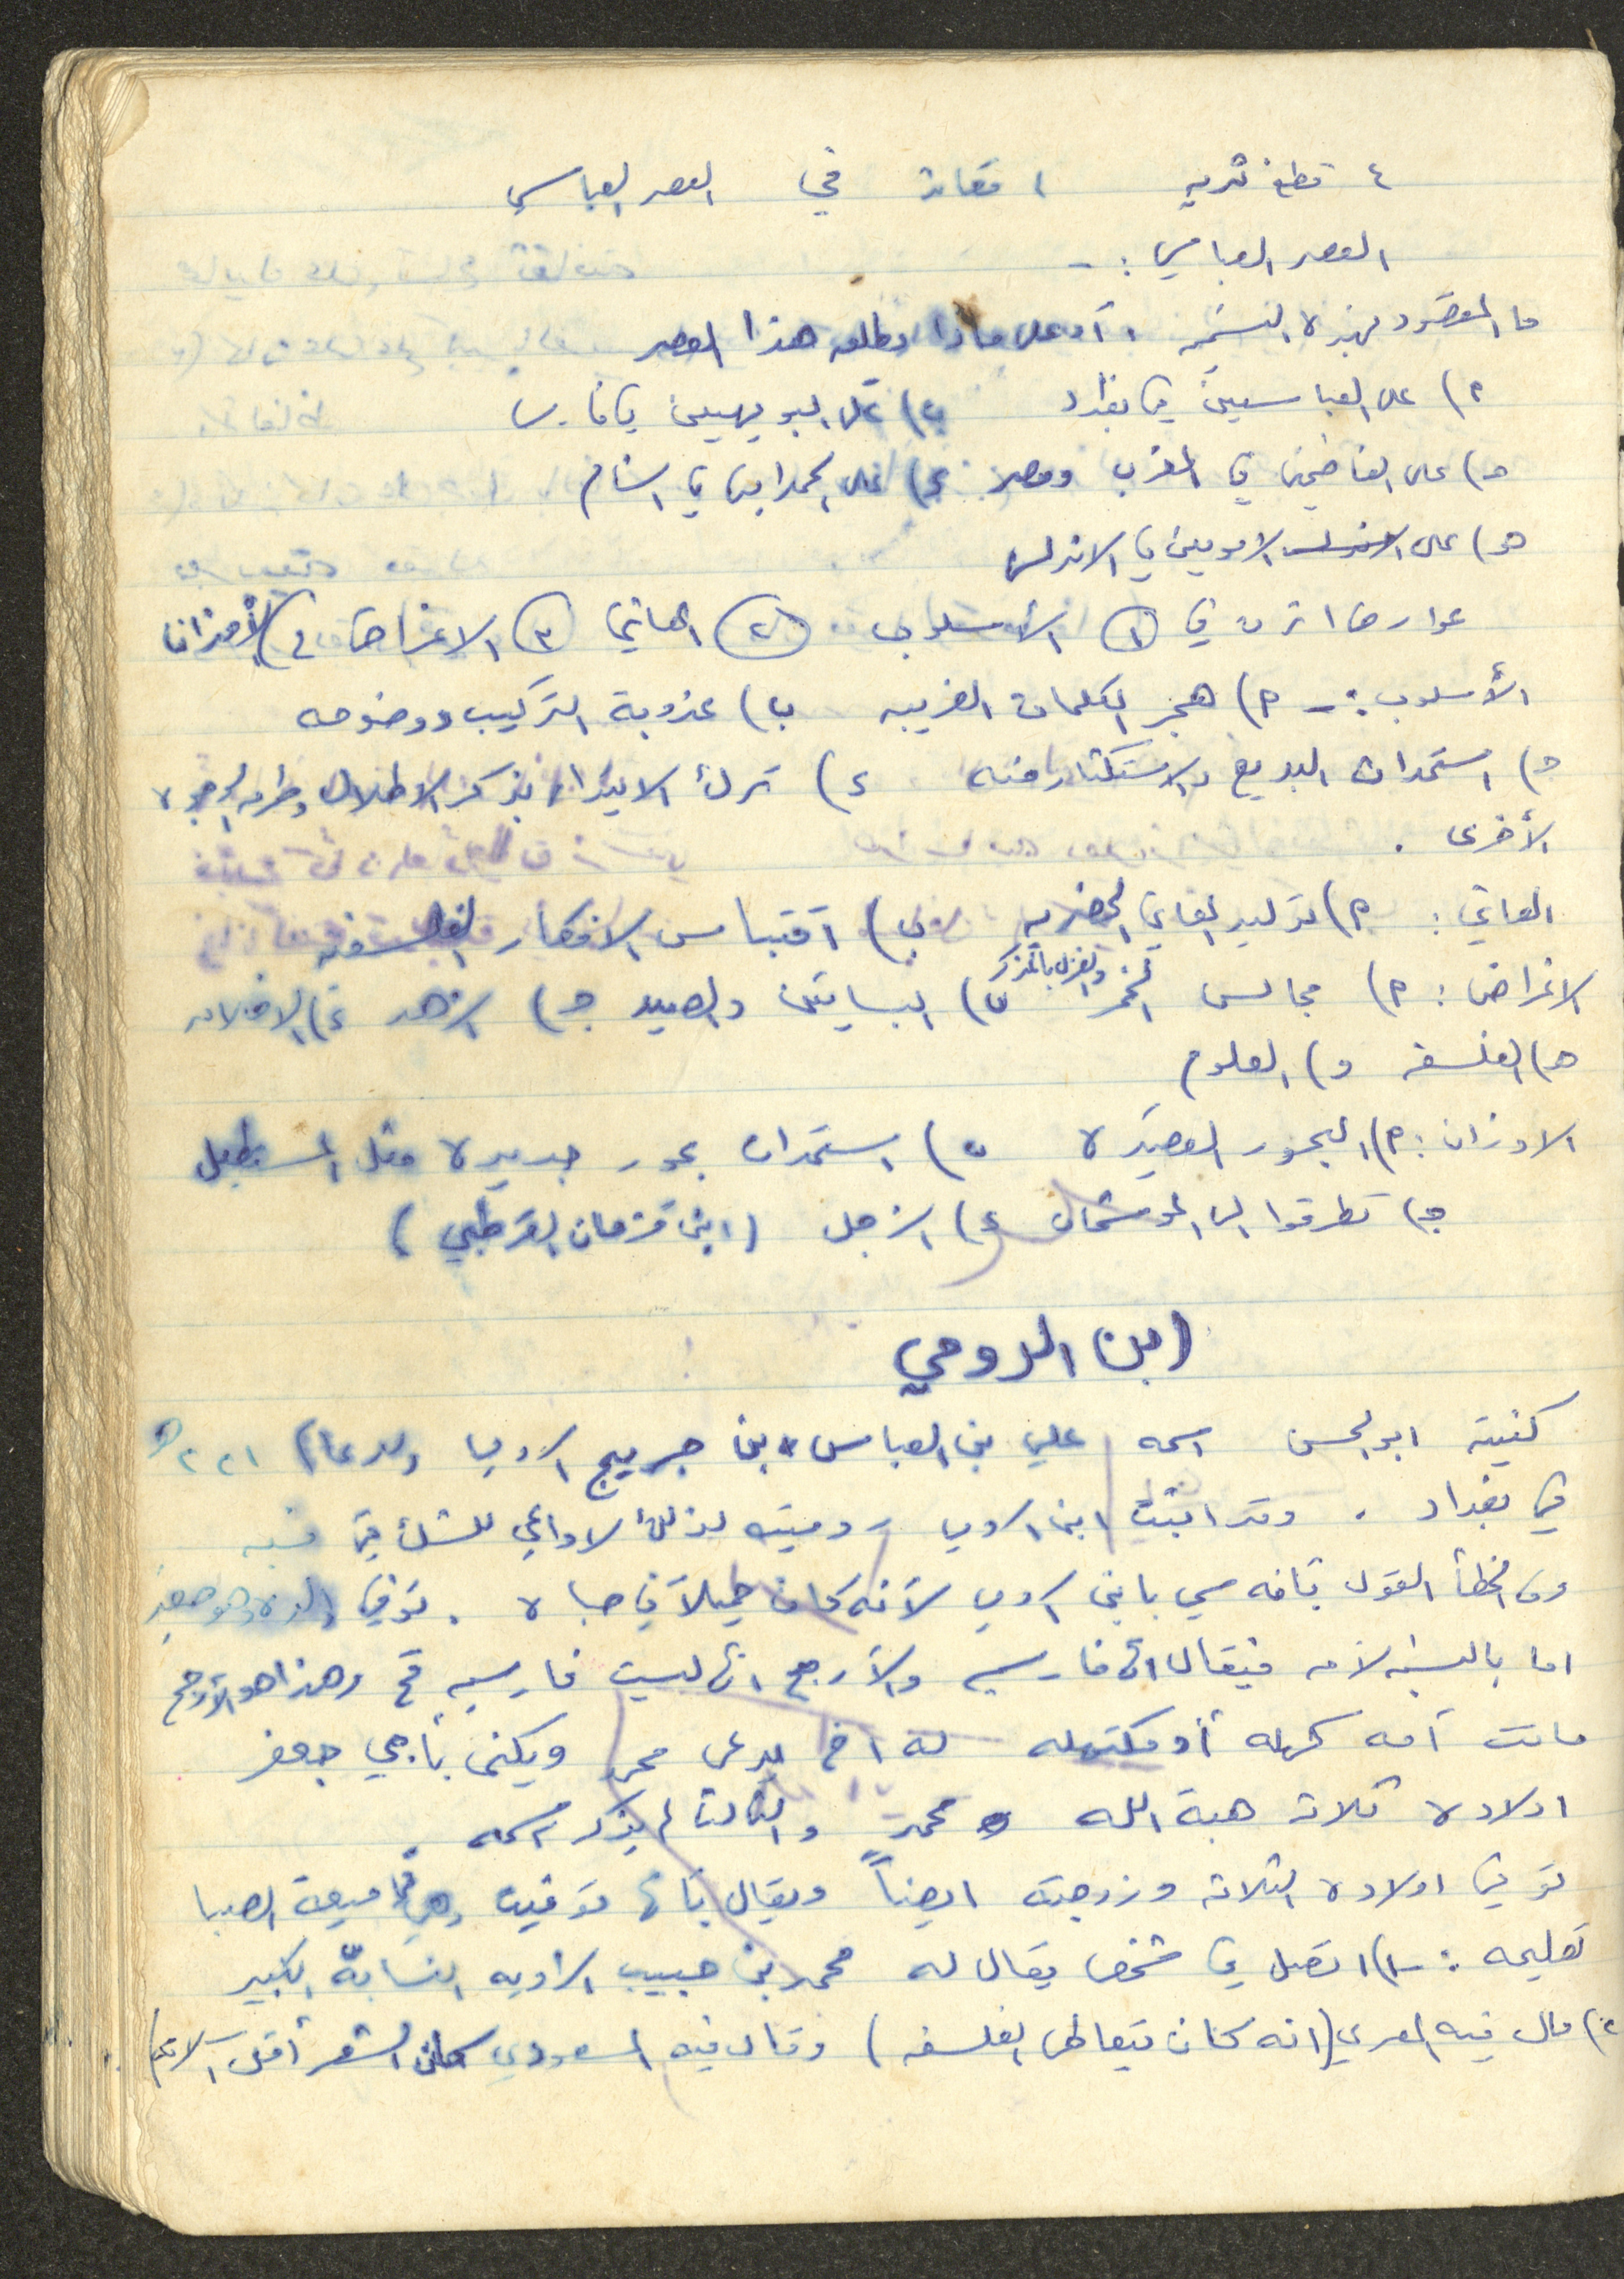 ٤ قطع نثريه ١ مقامة في العصر العباسي
العصر العباسي :-
ما المقصود بهذه التسميه ، أو على ماذا يطلق هذا العصر
أ) على العباسيين في بغداد ب) على البويهيين في فارس
ج) على الفاطميين في المغرب ومصر د) على الحمدانيين في الشام
هـ) على الامويين في الاندلس
عوارض اثرت في ① الأسلوب ② المعاني ③ الاغراض ٤) الأوزان
الأسلوب :- أ) هجر الكلمات الغريبه ب) عذوبة التركيب ووضوحه
ج) استحداث البديع والاستكثار منه د) ترك الابتداء بذكر الاطلال وطرق الوجوه
الأخرى .
المعاني : أ) توليد المعاني الحضريه ب) اقتباس الافكار الفلسفيه
الاغراض : أ) مجالس الخمر والغزل بالمذكر ب) البساتين والصيد ج) الزهد د) الاخلاق
هـ) الفلسفه و) العلوم
الاوزان : أ) البحور القصيره ب) استحداث بحور جديده مثل المستطيل
ج) تطرقوا الى الموشحات د) الزجل (ابن قزمان القرطبي)
ابن الرومي
كنيته ابو الحسن اسمه علي بن العباس بن جريج الرومي ولد عام ٢٢١ هـ
في بغداد . وقد اثبت ابن الرومي روميته لذلك لا داعي للشك في نسبه
ومن الخطأ القول بأنه سمي بابن الرومي لأنه كان جميلاً في صباه . توفي والده وهو صغير
اما بالنسبه لأمه فيقال انها فارسيه والأرجح انها ليست فارسيه قح وهذا هو الأرجح
ماتت أمه كهله أو مكتهله له اخ يدعى محمد ويكنى بأبي جعفر
اولاده ثلاثة هبة الله و محمد والثالث لم يذكر اسمه .
توفي اولاده الثلاثة وزوجته ايضاً ويقال بأنها توفيت وهي في ميعة الصبا
تعليمه :- ١) اتصل في شخص يقال له محمد بن حبيب الراويه النسابة الكبير
٢) قال فيه المعري (انه كان يتعاطى الفلسفه) وقال فيه المسعودي كان الشعر أقل آلاته)